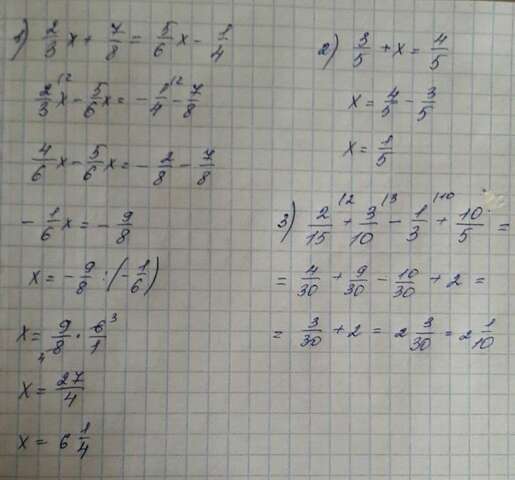 1) 2/3 x + 7/8 = 5/6 x - 1/4
2/3 |2 x - 5/6 x = - 1/4 |2 - 7/8
4/6 x - 5/6 x = - 2/8 - 7/8
- 1/6 x = - 9/8
x = - 9/8 : (- 1/6)
x = 9/8 4 · 6/1 3
x = 27/4
x = 6 1/4
2) 3/5 + x = 4/5
x = 4/5 - 3/5
x = 1/5
3) 2/15 |2 + 3/10 |3 - 1/3 |10 + 10/5 =
= 4/30 + 9/30 - 10/30 + 2 =
= 3/30 + 2 = 2 3/30 = 2 1/10